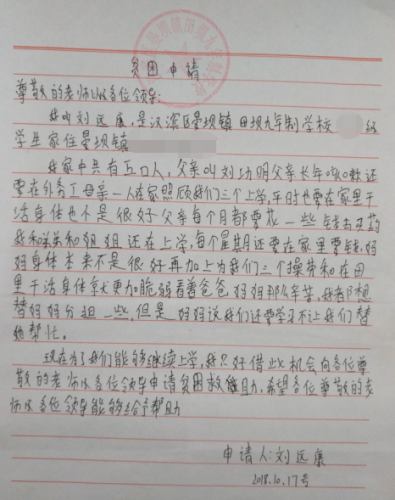 贫困申请
尊敬的老师以及各位领导:
我叫刘远康,是汉滨区晏坝镇田坝九年制学校 级
学生家住晏坝镇
我家中共有五口人,父亲叫刘功明父亲长年咳嗽还
要在外务工母亲一人在家照顾我们三个上学,平时也要在家里干
活身体也不是很好父亲每个月都要花一些钱去买药
我和弟弟和姐姐还在上学,每个星期还要在家里要钱,妈
妈身体本来不是很好再加上为我们三个操劳和在田
里干活身体就更加脆弱看着爸爸妈妈那么辛苦,我都想
替妈妈分担一些,但是妈妈说我们还要学习不让我们替
她帮忙。
现在为了我们能够继续上学,我只好借此机会向各位尊
敬的老师以及各位领导申请贫困救助,希望各位尊敬的老
师以及各位领导能够给予帮助
申请人:刘远康
2018.10.17号